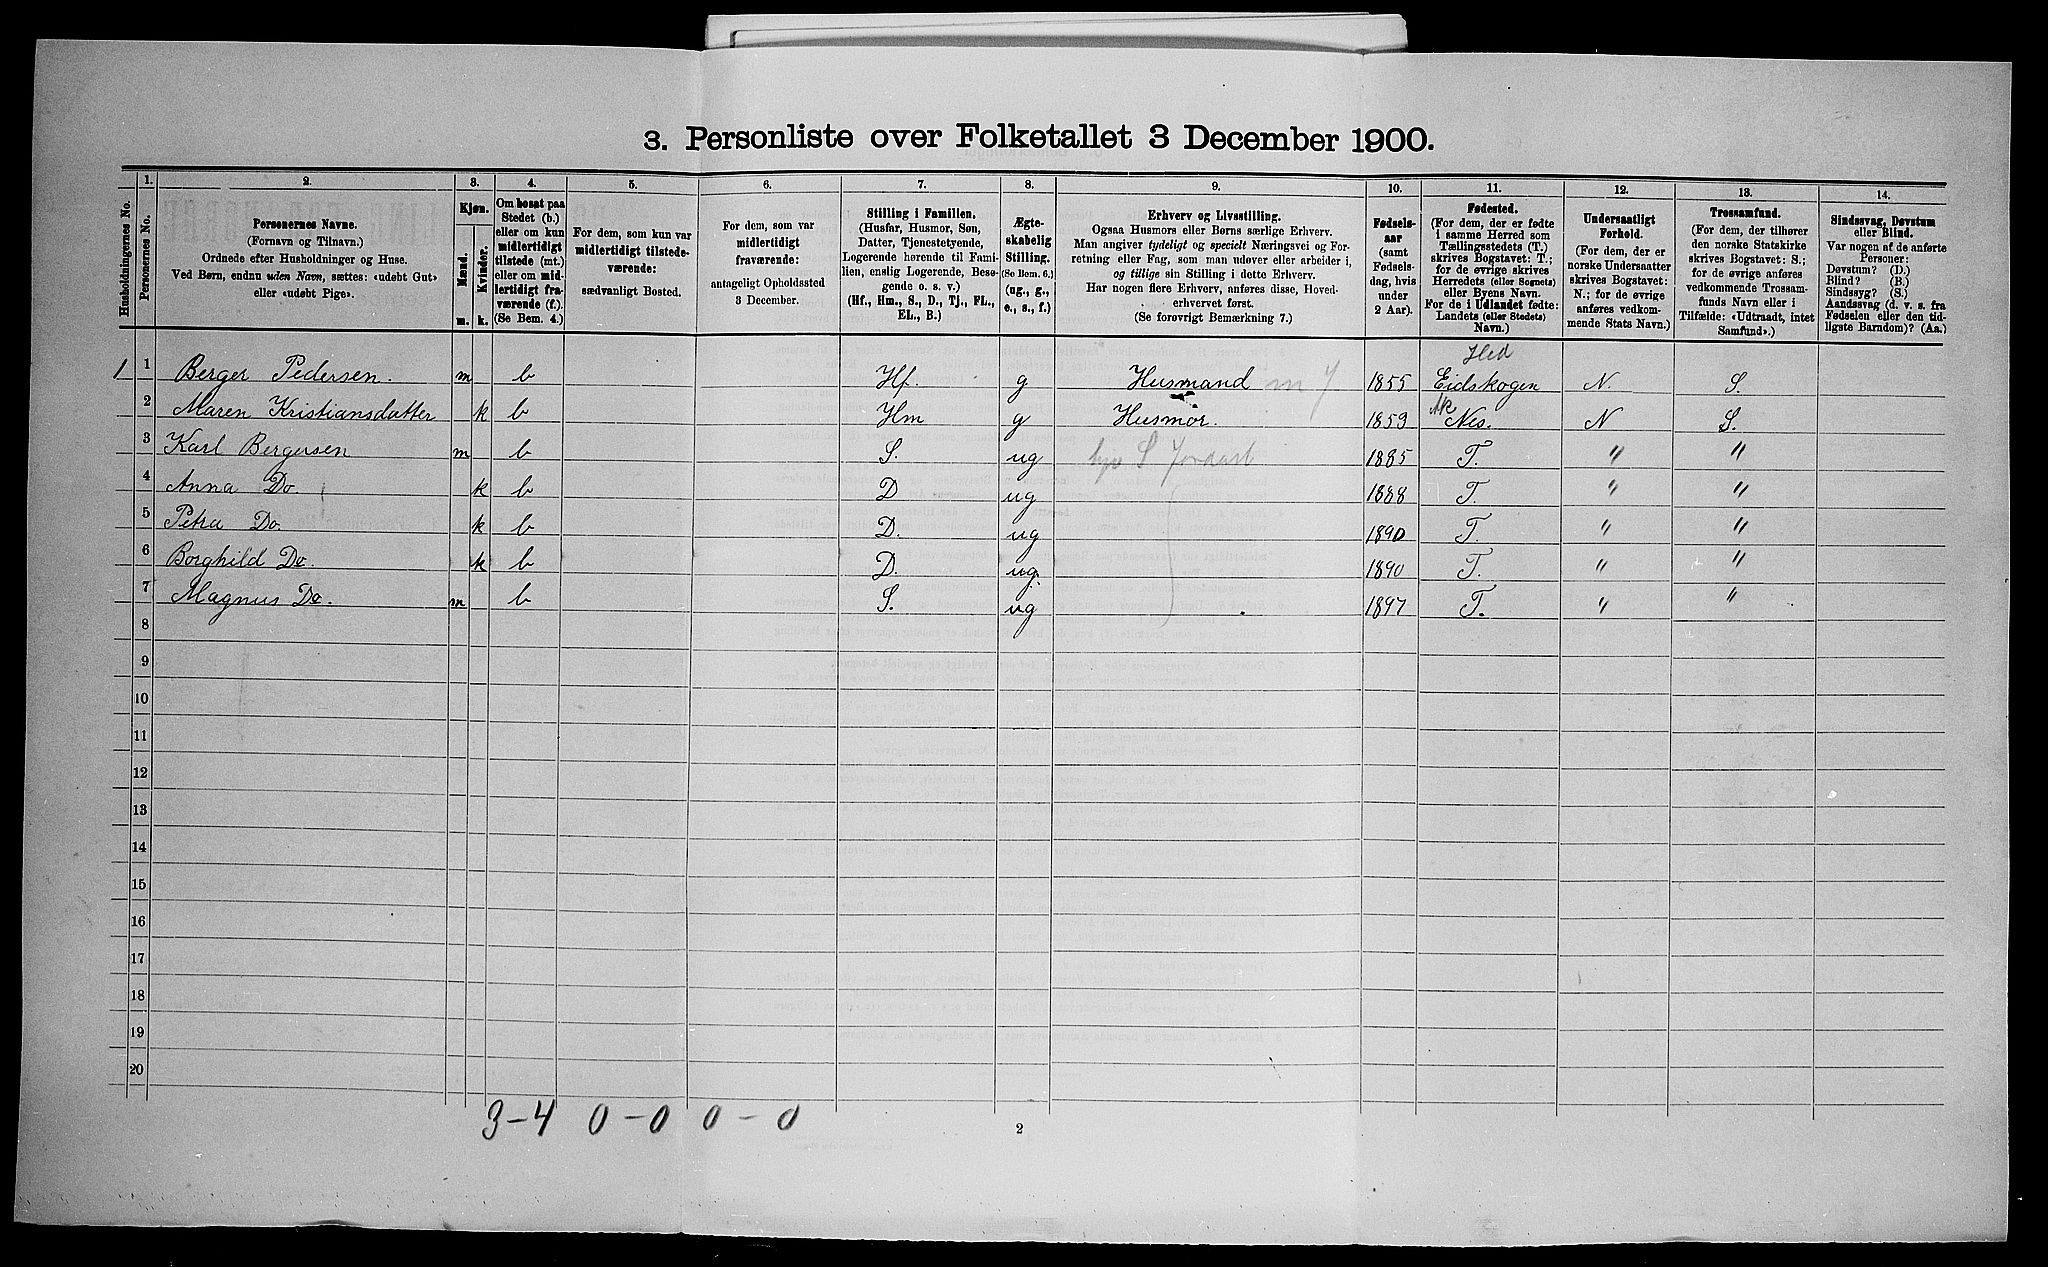 3. Personliste over Folketallet 3 December 1900.
1. 2. 3. 4. 5. 6. 7. 8. 9. 10. 11. 12. 13. 14.
Husholdningernes No.
Personernes No.
Personernes Navne.
(Fornavn og Tilnavn.)
Ordnede efter Husholdninger og Huse.
Ved Børn, endnu uden Navn, sættes: «udøbt Gut»
eller «udøbt Pige».
Kjøn.
Mænd.
Kvinder.
m. k.
Om bosat paa
Stedet (b.)
eller om kun
midlertidigt
tilstede (mt.)
eller om mid-
lertidigt fra-
værende (f.)
(Se Bem. 4.)
For dem, som kun var
midlertidigt tilstede-
værende:
sædvanligt Bosted.
For dem, som var
midlertidigt
fraværende:
antageligt Opholdssted
3 December.
Stilling i Familien.
(Husfar, Husmor, Søn,
Datter, Tjenestetyende,
Logerende hørende til Fami-
lien, enslig Logerende, Besø-
gende o. s. v.)
(Hf., Hm., S., D., Tj., FL.,
EL., B.)
Ægte-
skabelig
Stilling.
(Se Bem. 6.)
(ug., g.,
e., s., f.)
Erhverv og Livsstilling.
Ogsaa Husmors eller Børns særlige Erhverv.
Man angiver tydeligt og specielt Næringsvei og For-
retning eller Fag, som man udøver eller arbeider i,
og tillige sin Stilling i dette Erhverv.
Har nogen flere Erhverv, anføres disse, Hoved-
erhvervet først.
(Se forøvrigt Bemærkning 7.)
Fødsels-
aar
(samt
Fødsels-
dag, hvis
under
2 Aar).
Fødested.
(For dem, der er fødte
i samme Herred som
Tællingsstedets (T.)
skrives Bogstavet: T.;
for de øvrige skrives
Herredets (eller Sognets)
eller Byens Navn.
For de i Udlandet fødte:
Landets (eller Stedets)
Navn.)
Undersaatligt
Forhold.
(For dem, der er
norske Undersaatter
skrives Bogstavet:
N.; for de øvrige
anføres vedkom-
mende Stats Navn.)
Trossamfund.
(For dem, der tilhører
den norske Statskirke
skrives Bogstavet: S.;
for de øvrige anføres
vedkommende Trossam-
funds Navn eller i
Tilfælde: «Udtraadt, intet
Samfund».)
Sindssvag, Døvstum
eller Blind.
Var nogen af de anførte
Personer:
Døvstum? (D.)
Blind? (B.)
Sindssyg? (S.)
Aandssvag (d. v. s. fra
Fødselen eller den tid-
ligste Barndom)? (Aa.)
Hed
1 1 Berger Pedersen. m b Hf. g Husmand m 1855 Eidskogen N. S.
2 Maren Kristiansdatter k b Hm g Husmor. 1859 Ak Nes. N S.
3 Karl Bergersen m b S. ug S 1885 T. " "
4 Anna Do. k b D ug 1888 T. " "
5 Petra Do. k b D. ug 1890 T. " "
6 Borghild Do. k b D. ug. 1890 T. " "
7 Magnus Do. m b S. ug 1897 T. " "
8
9
10
11
12
13
14
15
16
17
18
19
20
3-4 0-0 0-0
2